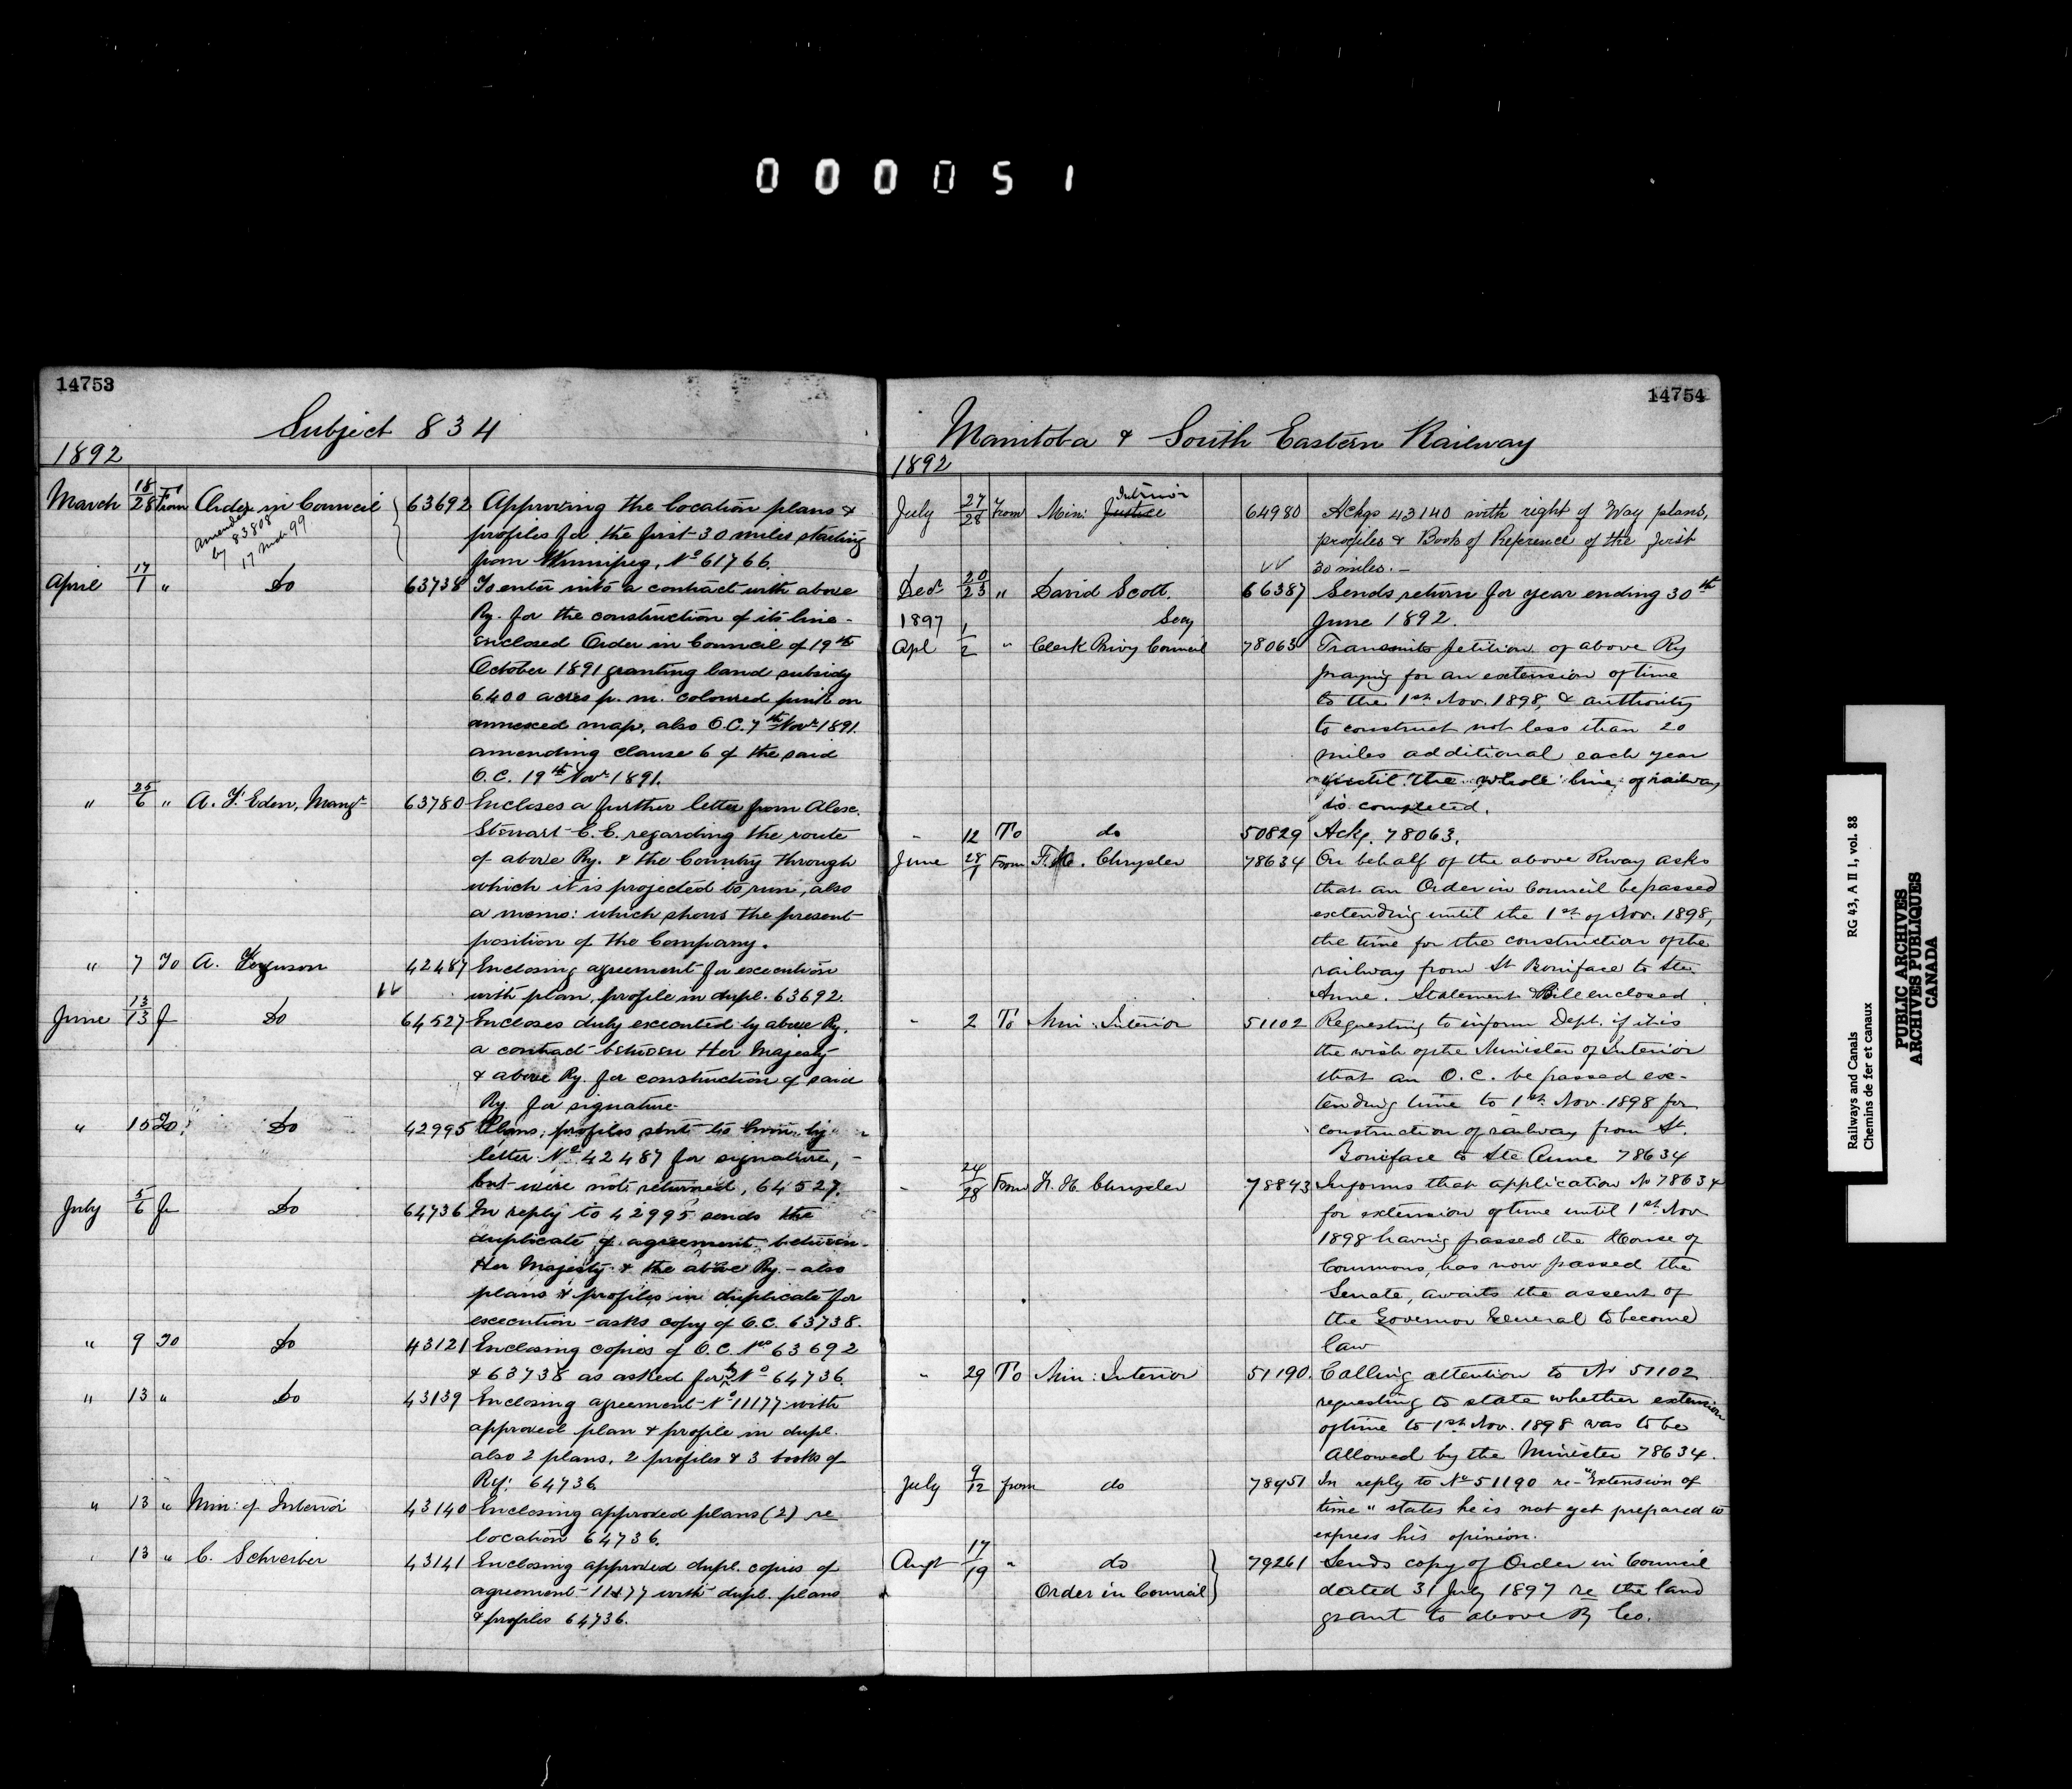 000051
14753
Subject 834
1892
March 18/28 From Order in Council 63692 Approving the location plans &
amended by 83808 17 Mch 99
profiles for the first 30 miles starting
from Winnipeg, No 61766.
April 17/1 " Do 63738 To enter into a contract with above
Ry. for the construction of its line -
Enclosed Order in Council of 19th
October 1891 granting land subsidy
6400 acres p. m. coloured pink on
annexed map, also O.C. 7th Novr 1891.
amending clause 6 of the said
O.C. 19th Novr 1891.
" 25/6 " A. F. Eden, Mangr 63780 Encloses a further letter from Alex.
Stewart C.E. regarding the route
of above Ry. & the Country through
which it is projected to run, also
a memo: which shows the present
position of the Company.
" 7 To A. Ferguson 42487 Enclosing agreement for execution
with plan, profile in dupl. 63692.
June 13/13 F Do 64527 Encloses duly executed by above Ry.
a contract between Her Majesty
& above Ry. for construction of said
Ry. for signature.
" 15 To Do 42995 Plans, profiles sent to him by
letter No 42487 for signature, -
but were not returned, 64527.
July 5/6 Fr Do 64736 In reply to 42995 sends the
duplicate of agreement between
Her Majesty & the above Ry. - also
plans & profiles in duplicate for
execution - asks copy of O.C. 63738.
" 9 To Do 43121 Enclosing copies of O.C. Nos 63692
& 63738 as asked for by No 64736.
" 13 " Do 43139 Enclosing agreement No 11177 with
approved plan & profile in dupl.
also 2 plans, 2 profiles & 3 books of
Ref: 64736
" 13 " Min: of Interior 43140 Enclosing approved plans (2) re
location 64736.
13 " C. Schreiber 43141 Enclosing approved dupl. copies of
agreement - 11177 with dupl. plans
& profiles 64736.
14754
Manitoba & South Eastern Railway
1892
Interior
July 27/28 From Min: Justice 64980 Ackgs 43140 with right of Way plans,
profiles & Book of Reference of the first
30 miles. -
Decr 20/23 " David Scott. 66387 Sends return for year ending 30th
1897 Secy June 1892.
Apl 1/2 " Clerk Privy Council 78063 Transmits petition of above Ry
praying for an extension of time
to the 1st Nov. 1898, & authority
to construct not less than 20
miles additional each year
until the whole line of railway
is completed.
" 12 To do 50829 Ackg. 78063.
June 28/1 From F. H. Chrysler 78634 On behalf of the above Rway asks
that an Order in Council be passed
extending until the 1st of Nov. 1898,
the time for the construction of the
railway from St Boniface to Ste.
Anne. Statement & Bill enclosed.
" 2 To Min: Interior 51102 Requesting to inform Dept. if it is
the wish of the Minister of Interior
that an O.C. be passed ex-
tending time to 1st Nov. 1898 for
construction of railway from St.
Boniface to Ste Anne 78634
" 24/28 From F. H. Chrysler 78843 Informs that application No 78634
for extension of time until 1st Nov
1898 having passed the House of
Commons, has now passed the
Senate, awaits the assent of
the Governor General to become
law
" 29 To Min: Interior 51190. Calling attention to No 51102
requesting to state whether extension
of time to 1st Nov. 1898 was to be
Allowed by the Minister 78634.
July 9/12 from do 78951 In reply to No 51190 re - "Extension of
time" states he is not yet prepared to
express his opinion.
Augt 17/19 " do 79261 Sends copy of Order in Council
Order in Council dated 31 July 1897 re the land
grant to above Ry Co.
Railways and Canals RG 43, A II 1, vol. 88
Chemins de fer et canaux
PUBLIC ARCHIVES
ARCHIVES PUBLIQUES
CANADA